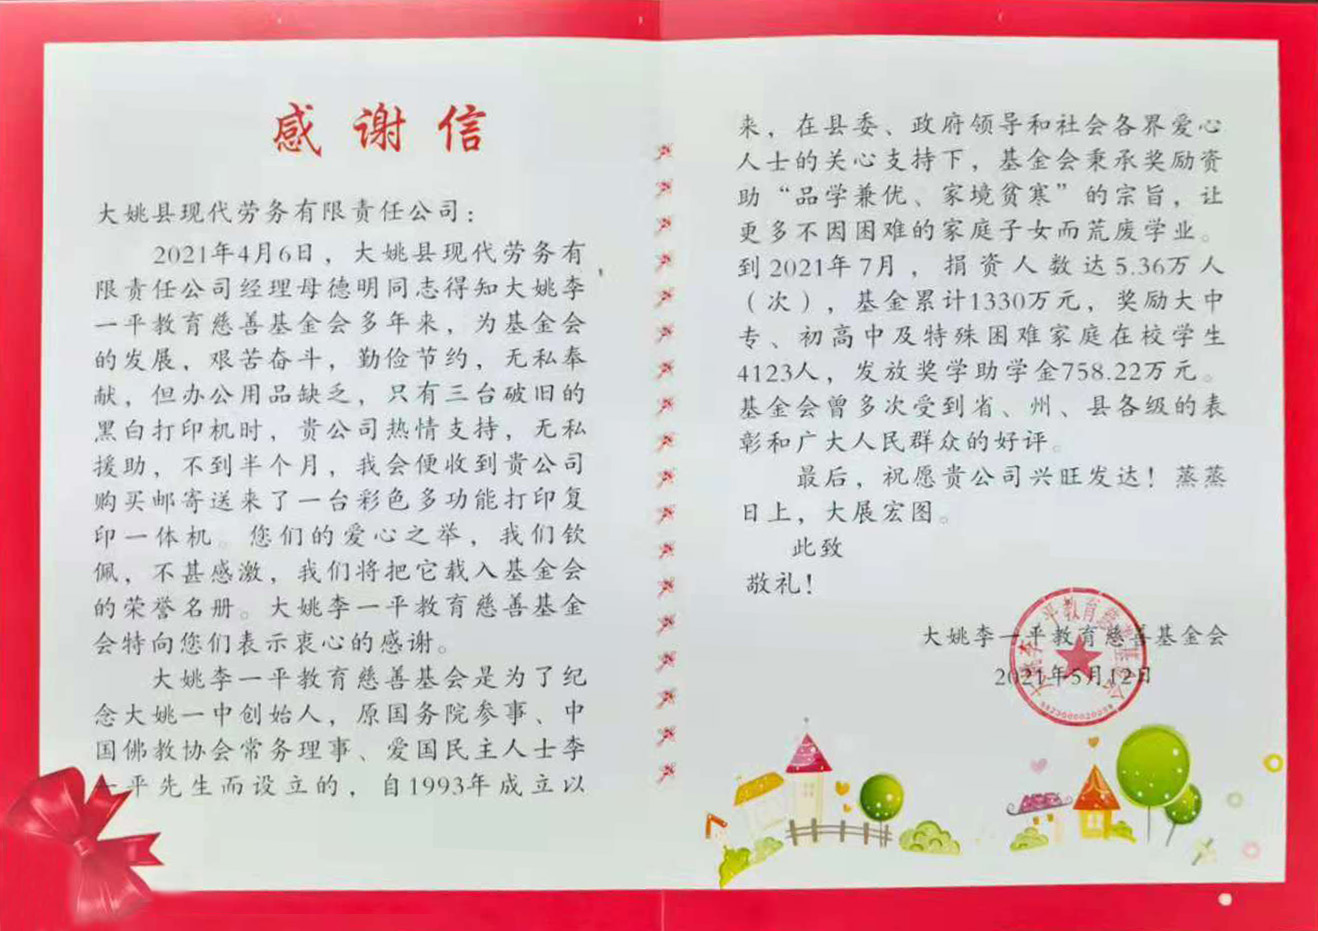 感谢信
大姚县现代劳务有限责任公司：
2021年4月6日，大姚县现代劳务有
限责任公司经理母德明同志得知大姚李
一平教育慈善基金会多年来，为基金会
的发展，艰苦奋斗，勤俭节约，无私奉
献，但办公用品缺乏，只有三台破旧的
黑白打印机时，贵公司热情支持，无私
援助，不到半个月，我会便收到贵公司
购买邮寄送来了一台彩色多功能打印复
印一体机。您们的爱心之举，我们钦
佩，不甚感激，我们将把它载入基金会
的荣誉名册。大姚李一平教育慈善基金
会特向您们表示衷心的感谢。
大姚李一平教育慈善基会是为了纪
念大姚一中创始人，原国务院参事、中
国佛教协会常务理事、爱国民主人士李
一平先生而设立的，自1993年成立以
来，在县委、政府领导和社会各界爱心
人士的关心支持下，基金会秉承奖励资
助“品学兼优、家境贫寒”的宗旨，让
更多不因困难的家庭子女而荒废学业。
到2021年7月，捐资人数达5.36万人
（次），基金累计1330万元，奖励大中
专、初高中及特殊困难家庭在校学生
4123人，发放奖学助学金758.22万元。
基金会曾多次受到省、州、县各级的表
彰和广大人民群众的好评。
最后，祝愿贵公司兴旺发达！蒸蒸
日上，大展宏图。
此致
敬礼！
大姚李一平教育慈善基金会
2021年5月12日
大姚李一平教育慈善基金会